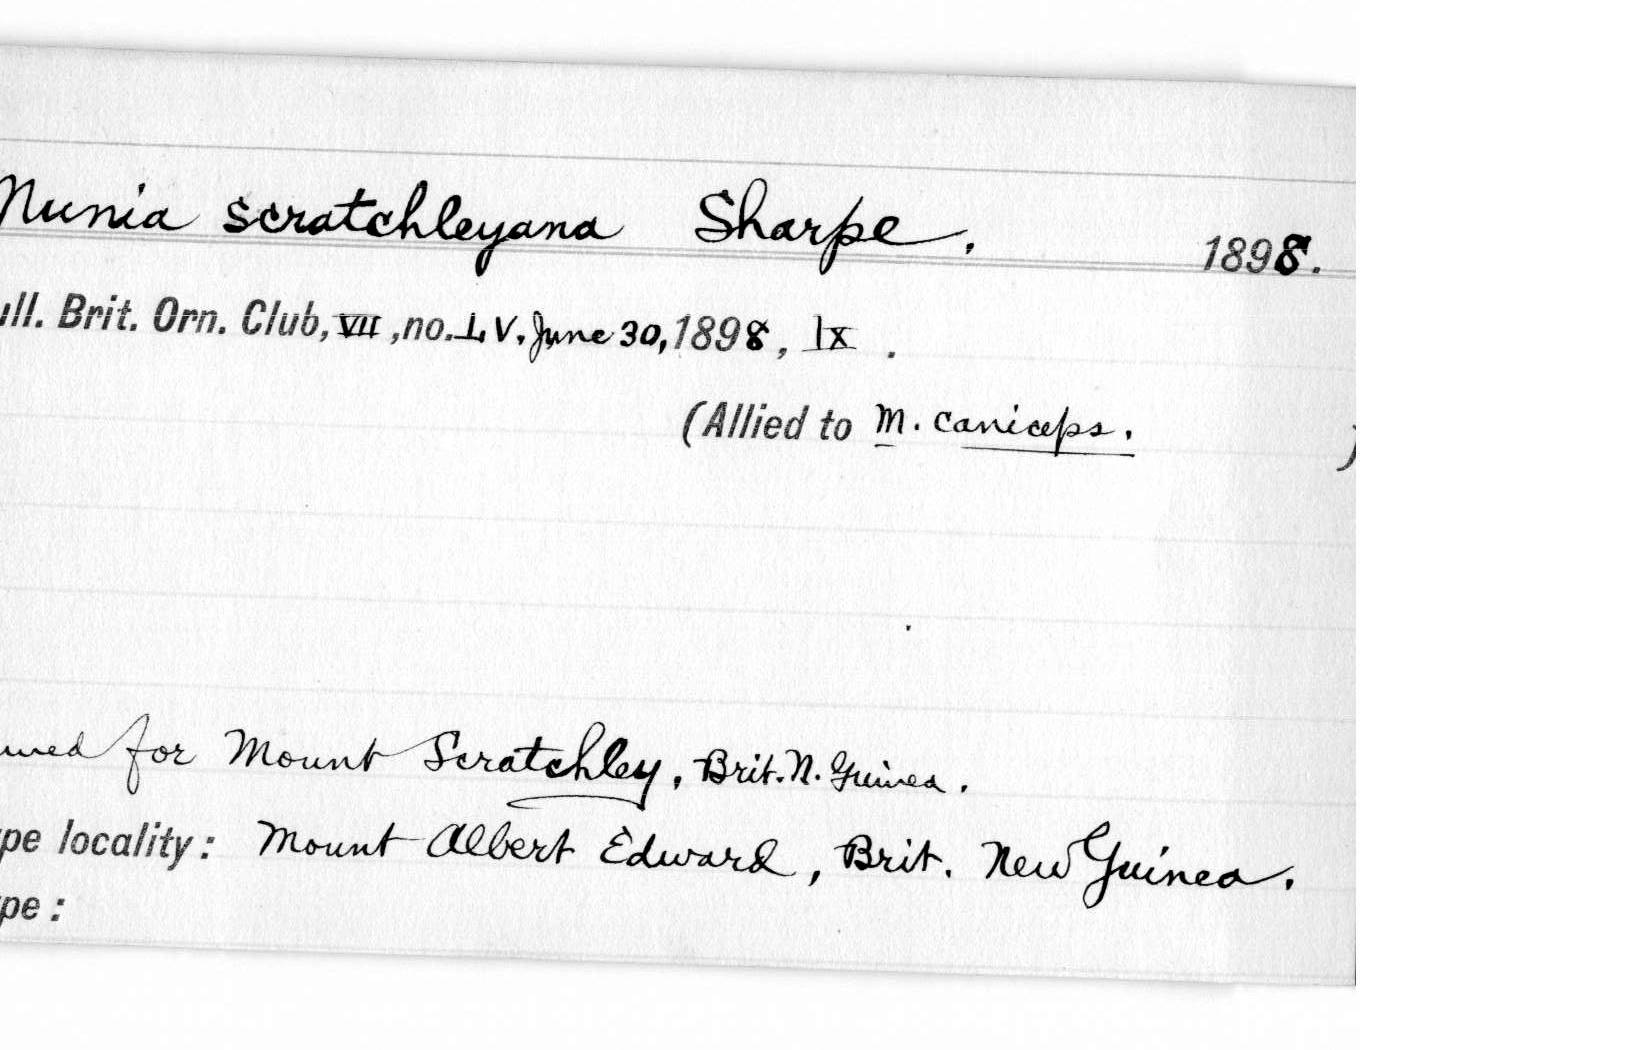 Munia scratchleyana Sharpe. 1898.
ull. Brit. Orn. Club, VII, no. LV. June 30, 1898, lx.
(Allied to M. caniceps. )
amed for Mount Scratchley, Brit. N. Guinea.
ype locality: Mount Albert Edward, Brit. New Guinea.
ype: